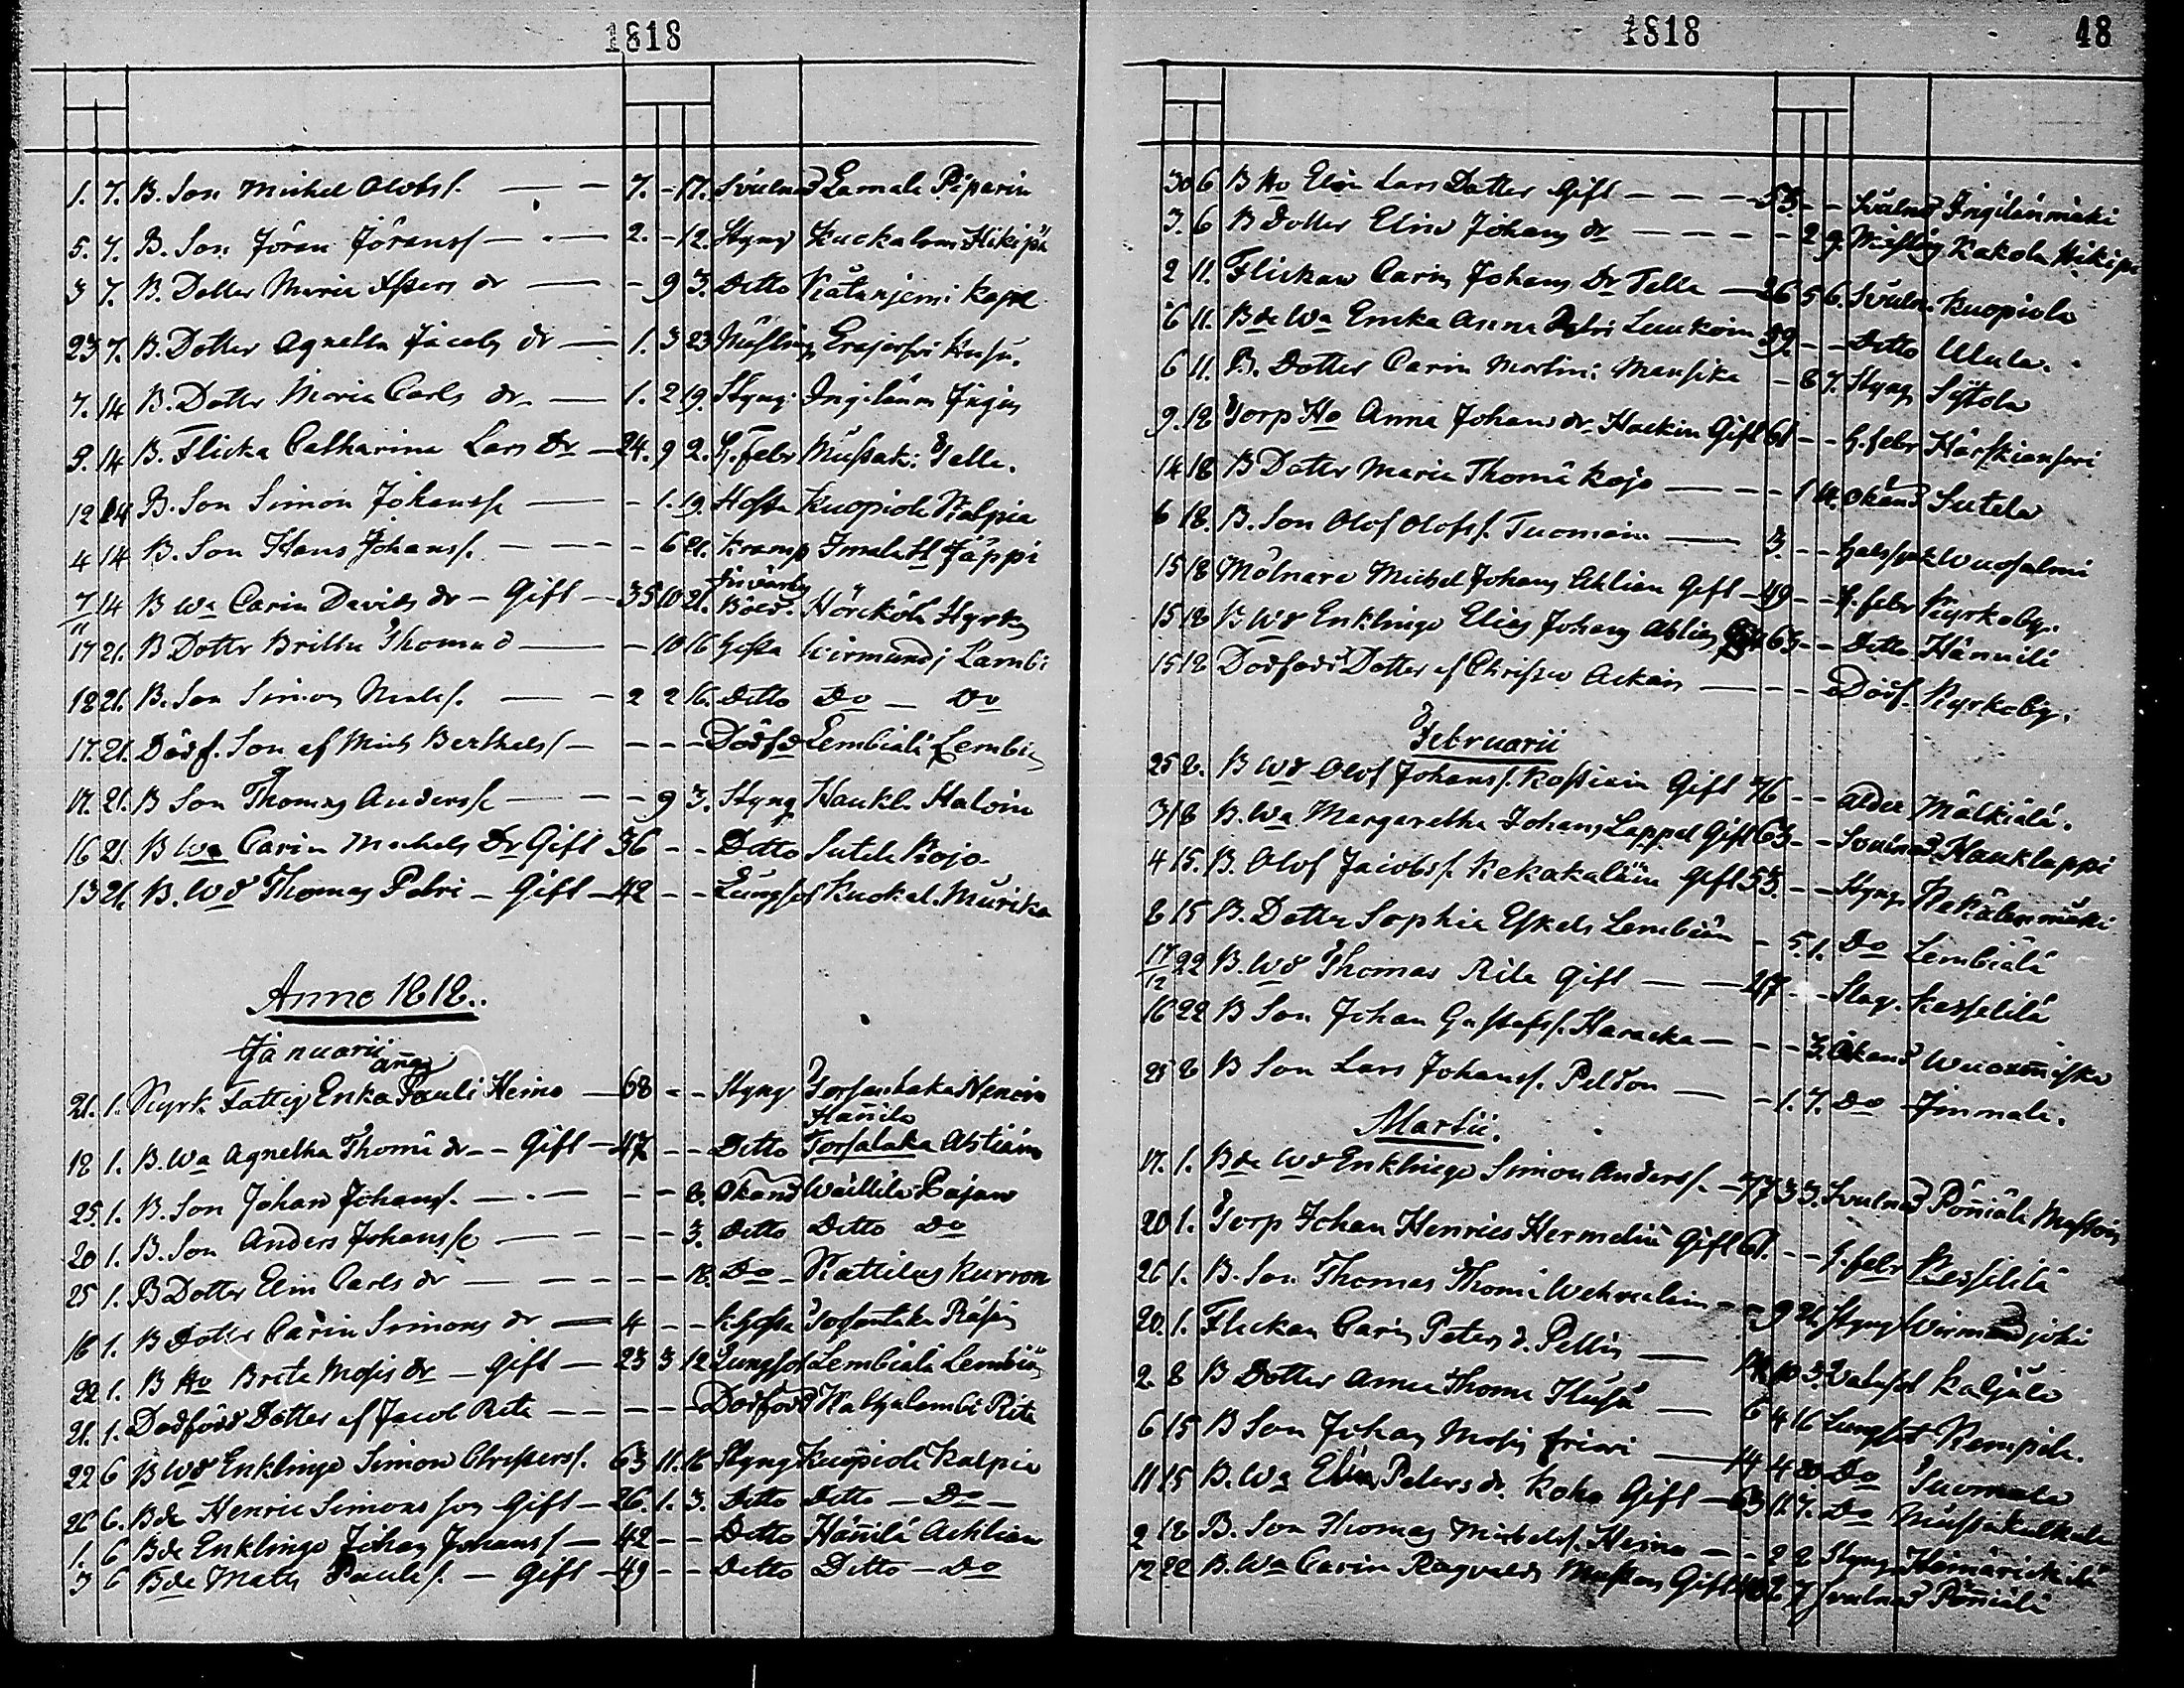 1818
1. 7. B. Son Michel Olofss. — — 7. - 17. Svulnad Lamala Piparin
5. 7. B. Son Jöran Jöranss — - — 2. - 12. Styng Kuckalam Hikipä
3 7. B. Dotter Maria Espers dr — - 9 3. Ditto Rätänjemi Kapel
23 7. B. Dotter Agnetha Jacobs dr — 1. 3 23 Mässling Erajerfvi Husu.
7. 14 B. Dotter Maria Carls dr — 1. 2 19. Styng Ingiläum Jngin
9. 14 B. Flicka Catharina Lars Dr — 24. 9 2. H. febr Mussak: Talla.
12 14 B. Son Simon Johanss — - 1. 19. Hosta Kuopiola Kalpia
4 14 B. Son Hans Johanss. — — - 6 21. Kramp Jmalast Jäppi
7 14 B Wa Carin Davids dr — Gift — 35 10 21. Invärtes Böld. Hörckölä Hyrkäs
11
17 21. B Dotter Britha Thomæ d — - 10 16 Hosta Wirmundj Lambi
18 21. B. Son Simon Madss. — — 2 2 16. Ditto Do — Do
17. 21. Dödf. Son af Mich Berthelss — - - - Dödfd Lembiälä Lembiä
17. 21. B Son Thomas Anderss — — - 9 3. Styng Haukla Haloin
16 21. B Wa Carin Michels Dr Gift 36 - - Ditto Sutela Kojo
13 21. B. Wd Thomas Petri — Gift — 42 - - Lungsot Kuckal. Murika
Anno 1818..
Januarii
21. 1. Kyrk Fattig Enka Anna Pauli Heino — 68 - - Styng Torsanhaka Nenoin
Hannila
18 1. B. Wa Agnetha Thomæ dr — Gift — 47 - - Ditto Torsalaka Ahtiain
25. 1. B. Son Johan Johanss. — - — - - 8. Okänd Waittila Pajan
20 1. B. Son Anders Johansse — — - - 3. Ditto Ditto Do
25 1. B Dotter Elin Carls dr — — - - 18. Do - Kattilas Kurron
16 1. B Dotter Carin Simons dr — 4 - - K Hosta Torsantaka Räsin
22 1. B Ho Brita Mosis dr — Gift — 23 3 12 Lungsot Lembiälä Lembiän
21. 1. Dödfödd Dotter af Jacob Rita — - - - Dödfödd Kabhalambi Rita
22 6 B Wd Enklinge Simon Christerss. 63 11. 16 Styng Kuopiola Kalpia
26 6. Bde Henric Simons son Gift — 26. 1. 3. Ditto Ditto — Do —
1. 6 Bde Enklinge Johan Johanss — 42 - - Ditto Hänilä Achlian
3 6 Bde Mats Paulis. — Gift — 49 - - Ditto Ditto — Do
1818 48
30 6 B Ho Elin Lars Dotter Gift — — — 53 - - Svulnad Ingilänmäki
3. 6 B Dotter Elin Johans dr — — — - 2 9. Mässling Kakola Hikipä
2 11. Flickan Carin Johans Dr Talla — 26 5 6. Svuln. Kuopiola
6 11. Bde Wa Enka Anna Petri Luukoin 39. - - Ditto Ulula.
6 11. B. Dotter Carin Martini Mansika - 8 7. Styng Sÿtola
9. 12 Torp Ho Anna Johans dr. Hackin Gift 61 - - H. febr Härskiansari
14 18 B Dotter Maria Thomæ Kojo — — - 1 14. Okänd Sutela
6 18. B. Son Olof Olofss. Tuomain — 3. - - Halssjuk Wuosalmi
15 18 Mölnare Michel Johans Ahlian Gift — 49 - - H. febr Kyrkoby.
15 18 B Wd Enklinge Elias Johans Ahlian 63 - - Ditto Hännilä
15 18 Dödfödd Dotter af Christer Ackain — - - - Dödf. Kyrkoby.
Februarii
25 8. B Wd Olof Johanss. Kostiain Gift 76 - - Ålder Mälkiälä.
31 8 B. Wa Margaretha Johans Lappal Gift 63 - - Svulnad Hauklappi
4 15. B. Olof Jacobss. Kekakaläin Gift 53. - - Styng Kekälänmäki
8 15 B. Dotter Sophia Eskels Lembiän - 5. 1. Do Lembiälä
17
12 22 B. Wd Thomas Rita Gift — — 47 - - Slag. Kesselilä
16 22 B Son Johan Gustafss. Haracka — — - 3. Okänd Wuoxenniska
25 8 B Son Lars Johanss. Peldon — - 1. 7. Do Jmmala.
Martii.
17. 1. Bde Wd Enklinge Simon Anderss. — 77 3 3. Svulnad Pönniälä Maston
20 1. Torp Johan Henrics Hermelin Gift 61. - - H. febr Kesselilä
26 1. B. Son Thomas Thomæ Wehvilain - - 9 21. Styng Wirmandjoki
20. 1. Flickan Carin Peters d. Pellin — 14 10 3. Lungsot Kaljula
2 8 B Dotter Anna Thomæ Husu — 6 4 16 Lungsot Rempilä.
6 15 B Son Johan Mosis friari — 14 4 20 Do Tuomala
11 15 B. Wa Elin Peters dr. Koho Gift — 63 11 7. Do Mussakukala
2 18 B. Son Thomas Michelss. Heino — - 2 2 Styng Hämärickilä
12 22 B. Wa Carin Ragvalds Maston Gift 40 2 7 Svulnad Pönniälä